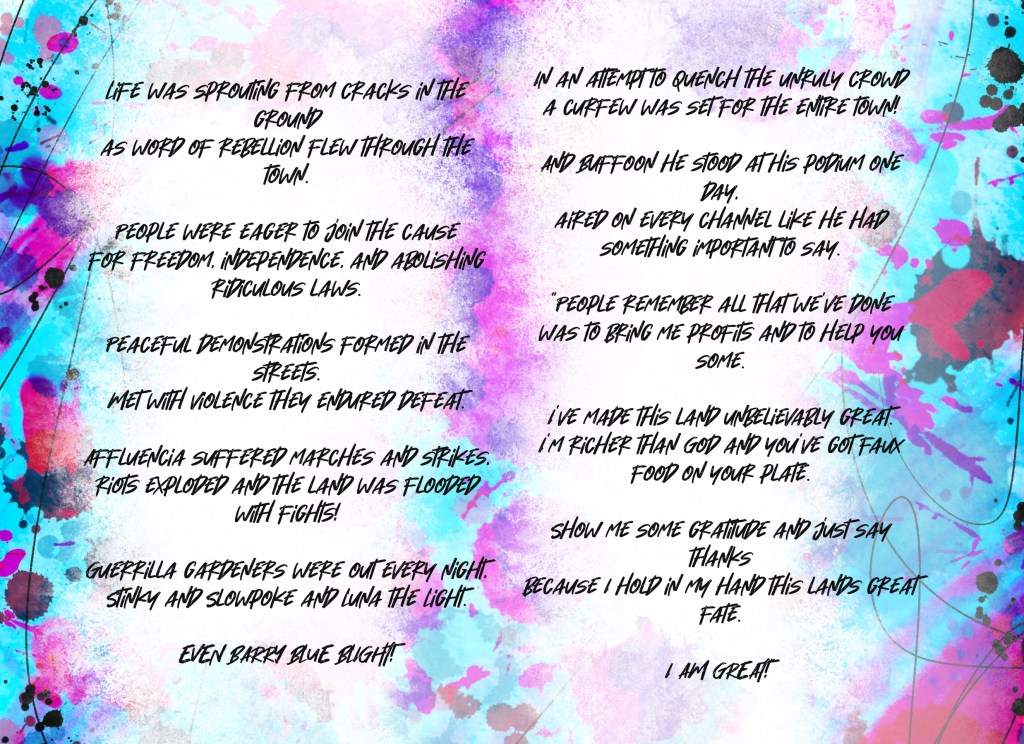 LIFE WAS SPROUTING FROM CRACKS IN THE
GROUND
AS WORD OF REBELLION FLEW THROUGH THE
TOWN.
PEOPLE WERE EAGER TO JOIN THE CAUSE
FOR FREEDOM, INDEPENDENCE, AND ABOLISHING
RIDICULOUS LAWS.
PEACEFUL DEMONSTRATIONS FORMED IN THE
STREETS.
MET WITH VIOLENCE THEY ENDURED DEFEAT.
AFFLUENCIA SUFFERED MARCHES AND STRIKES,
RIOTS EXPLODED AND THE LAND WAS FLOODED
WITH FIGHTS!
GUERRILLA GARDENERS WERE OUT EVERY NIGHT.
STINKY AND SLOWPOKE AND LUNA THE LIGHT.
EVEN BARRY BLUE BLIGHT!
IN AN ATTEMPT TO QUENCH THE UNRULY CROWD
A CURFEW WAS SET FOR THE ENTIRE TOWN!
AND BUFFOON HE STOOD AT HIS PODIUM ONE
DAY,
AIRED ON EVERY CHANNEL LIKE HE HAD
SOMETHING IMPORTANT TO SAY.
"PEOPLE REMEMBER ALL THAT WE'VE DONE
WAS TO BRING ME PROFITS AND TO HELP YOU
SOME.
I'VE MADE THIS LAND UNBELIEVABLY GREAT.
I'M RICHER THAN GOD AND YOU'VE GOT FAUX
FOOD ON YOUR PLATE.
SHOW ME SOME GRATITUDE AND JUST SAY
THANKS
BECAUSE I HOLD IN MY HAND THIS LANDS GREAT
FATE.
I AM GREAT!